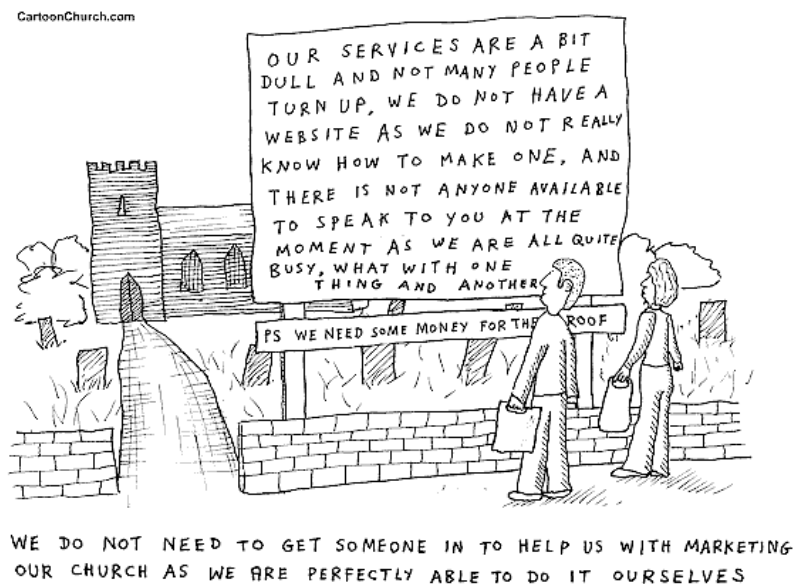 CartoonChurch.com
OUR SERVICES ARE A BIT
DULL AND NOT MANY PEOPLE
TURN UP, WE DO NOT HAVE A
WEBSITE AS WE DO NOT REALLY
KNOW HOW TO MAKE ONE, AND
THERE IS NOT ANYONE AVAILABLE
TO SPEAK TO YOU AT THE
MOMENT AS WE ARE ALL QUITE
BUSY, WHAT WITH ONE
THING AND ANOTHER
PS WE NEED SOME MONEY FOR THE ROOF
WE DO NOT NEED TO GET SOMEONE IN TO HELP US WITH MARKETING
OUR CHURCH AS WE ARE PERFECTLY ABLE TO DO IT OURSELVES